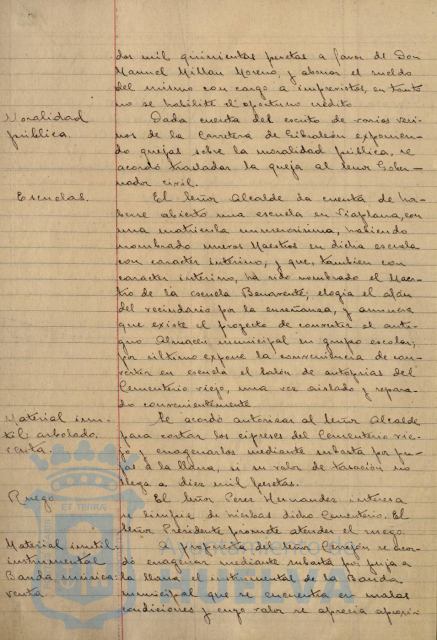 dos mil quinientas pesetas a favor de Don
Manuel Millan Moreno, y abonar el sueldo
del mismo con cargo a imprevistos, en tanto
no se habilite el oportuno crédito
Moralidad
pública.
Dada cuenta del escrito de varios veci-
nos de la Carretera de Gibraleón exponien-
do quejas sobre la moralidad pública, se
acordó trasladar la queja al señor Gober-
nador civil.
Escuelas.
El Señor Alcalde da cuenta de ha-
berse abierto una escuela en Viaplana, con
una matrícula numerosísima, habiendo
nombrado nuevos Maestros en dicha escuela
con caracter interino, y que, tambien con
caracter interino, ha sido nombrado el Maes-
tro de la escuela Benavente; elogia el afán
del vecindario por la enseñanza, y anuncia
que existe el proyecto de convertir el anti-
guo Almacén municipal en grupo escolar;
por último expone la conveniencia de con-
vertir en escuela el salón de autopsias del
Cementerio viejo, una vez aislado y repara-
do convenientemente
Material inu-
til: arbolado.
venta.
Se acordó autorizar al Señor Alcalde
para cortar los cipreses del Cementerio vie-
jo y enagenarlos mediante subasta por pu-
jas a la llana, si su valor de tasación no
llega a diez mil pesetas.
Ruego
El Señor Perez Hernandez interesa
se limpie de hierbas dicho Cementerio. El
Señor Presidente promete atender el ruego.
Material inutil:
instrumental
Banda música:
venta
A propuesta del señor Cerrejón se acor-
dó enagenar mediante subasta por puja a
la llana el instrumental de la Banda
municipal que se encuentra en malas
condiciones y cuyo valor se aprecia aproxi-